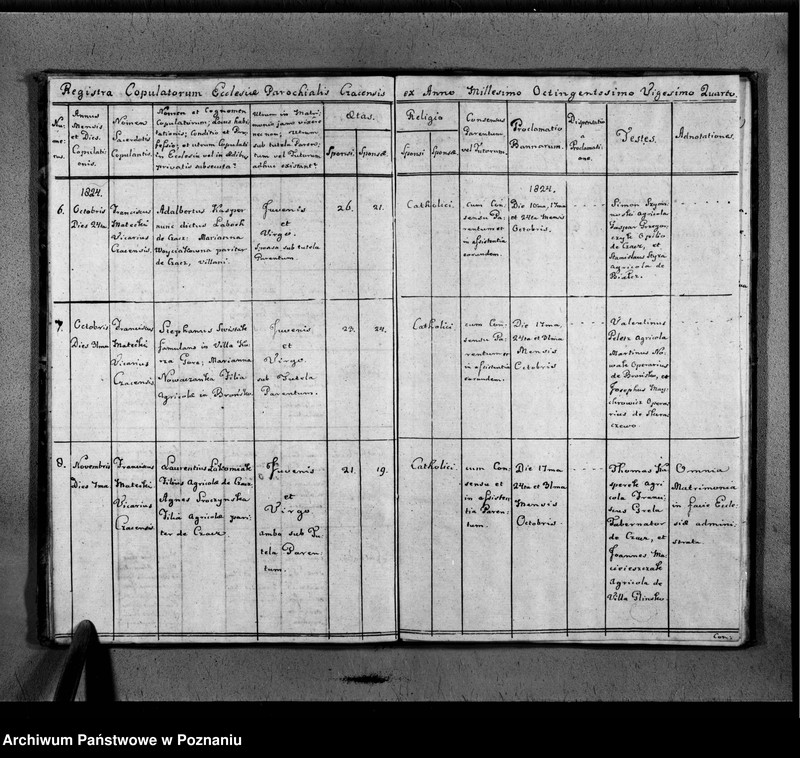 Registra Copulatorum Ecclesiæ Parochialis Czacensis ex Anno Millesimo Octingentesimo Vigesimo Quarto.
Nu-
me-
rus.
Annus
Mensis
et Dies
Copulati
onis.
Nomen
Sacerdotis
Copulantis.
Nomen et Cognomen
Copulatorum; Locus habi
tationis; Conditio et Pro
fessio; et utrum Copulati
in Ecclesia vel in ædibus
privatis
Utrum in Matri
monio jam vixerit
nec non; Utrum
sub tutela Paren
tum vel Tutorum
adhuc existant?
Ætas.
Sponsi.
Sponsæ.
Religio
Sponsi
Sponsæ
Consensus
Parentum
vel Tutorum.
Proclamatio
Bannorum.
Dispensatio
a
Proclamati
one.
Testes.
Adnotationes.
1824.
1824.
6.
Octobris
Dies 24ta
Franciscus
Matecki
Vicarius
Czacensis.
Adalbertus Kasper
nunc dictus
de Czacz; Marianna
pariter
de Czacz, villani.
Juvenis
et
Virgo.
Sponsa sub tutela
Parentum.
26.
21.
Catholici.
cum Con
sensu Pa
rentum et
in assistentia
eorundem.
Die 10ma, 17ma
et 24ta Mensis
Octobris.
Simon
Agricola
Gaspar
Opilio
de Czacz, et
Stanislaus
Agricola de
7.
Octobris
Dies 31ma
Franciscus
Matecki
Vicarius
Czacensis
Stephanus
famulans in Villa Ka
rza Gora; Marianna
Nowaczanka Filia
Agricolæ in Brońsko
Juvenis
et
Virgo
sub Tutela
Parentum.
23.
24.
Catholici
cum Con
sensu Pa
rentum et
in assistentia
eorundem.
Die 17ma,
24ta et 31ma
Mensis
Octobris
Valentinus
Agricola
Martinus No
wak Operarius
de Brońsko, et
Josephus May
chrowicz Opera
rius de
8.
Novembris
Dies 7ma
Franciscus
Matecki
Vicarius
Czacensis
Laurentius
Filius Agricolæ de Czacz
Agnes
Filia Agricolæ pari
ter de Czacz.
Juvenis
et
Virgo
ambo sub Tu
tela Paren
tum.
21.
19.
Catholici.
cum Con
sensu et
in assisten
tia Paren
tum.
Die 17ma
24ta et 31ma
Mensis
Octobris.
Thomas Ka
sperek Agri
cola Franci
scus
Tabernator
de Czacz, et
Joannes Ma
Agricola de
Villa
Omnia
Matrimonia
in facie Eccle
siæ admini
strata.
Archiwum Państwowe w Poznaniu